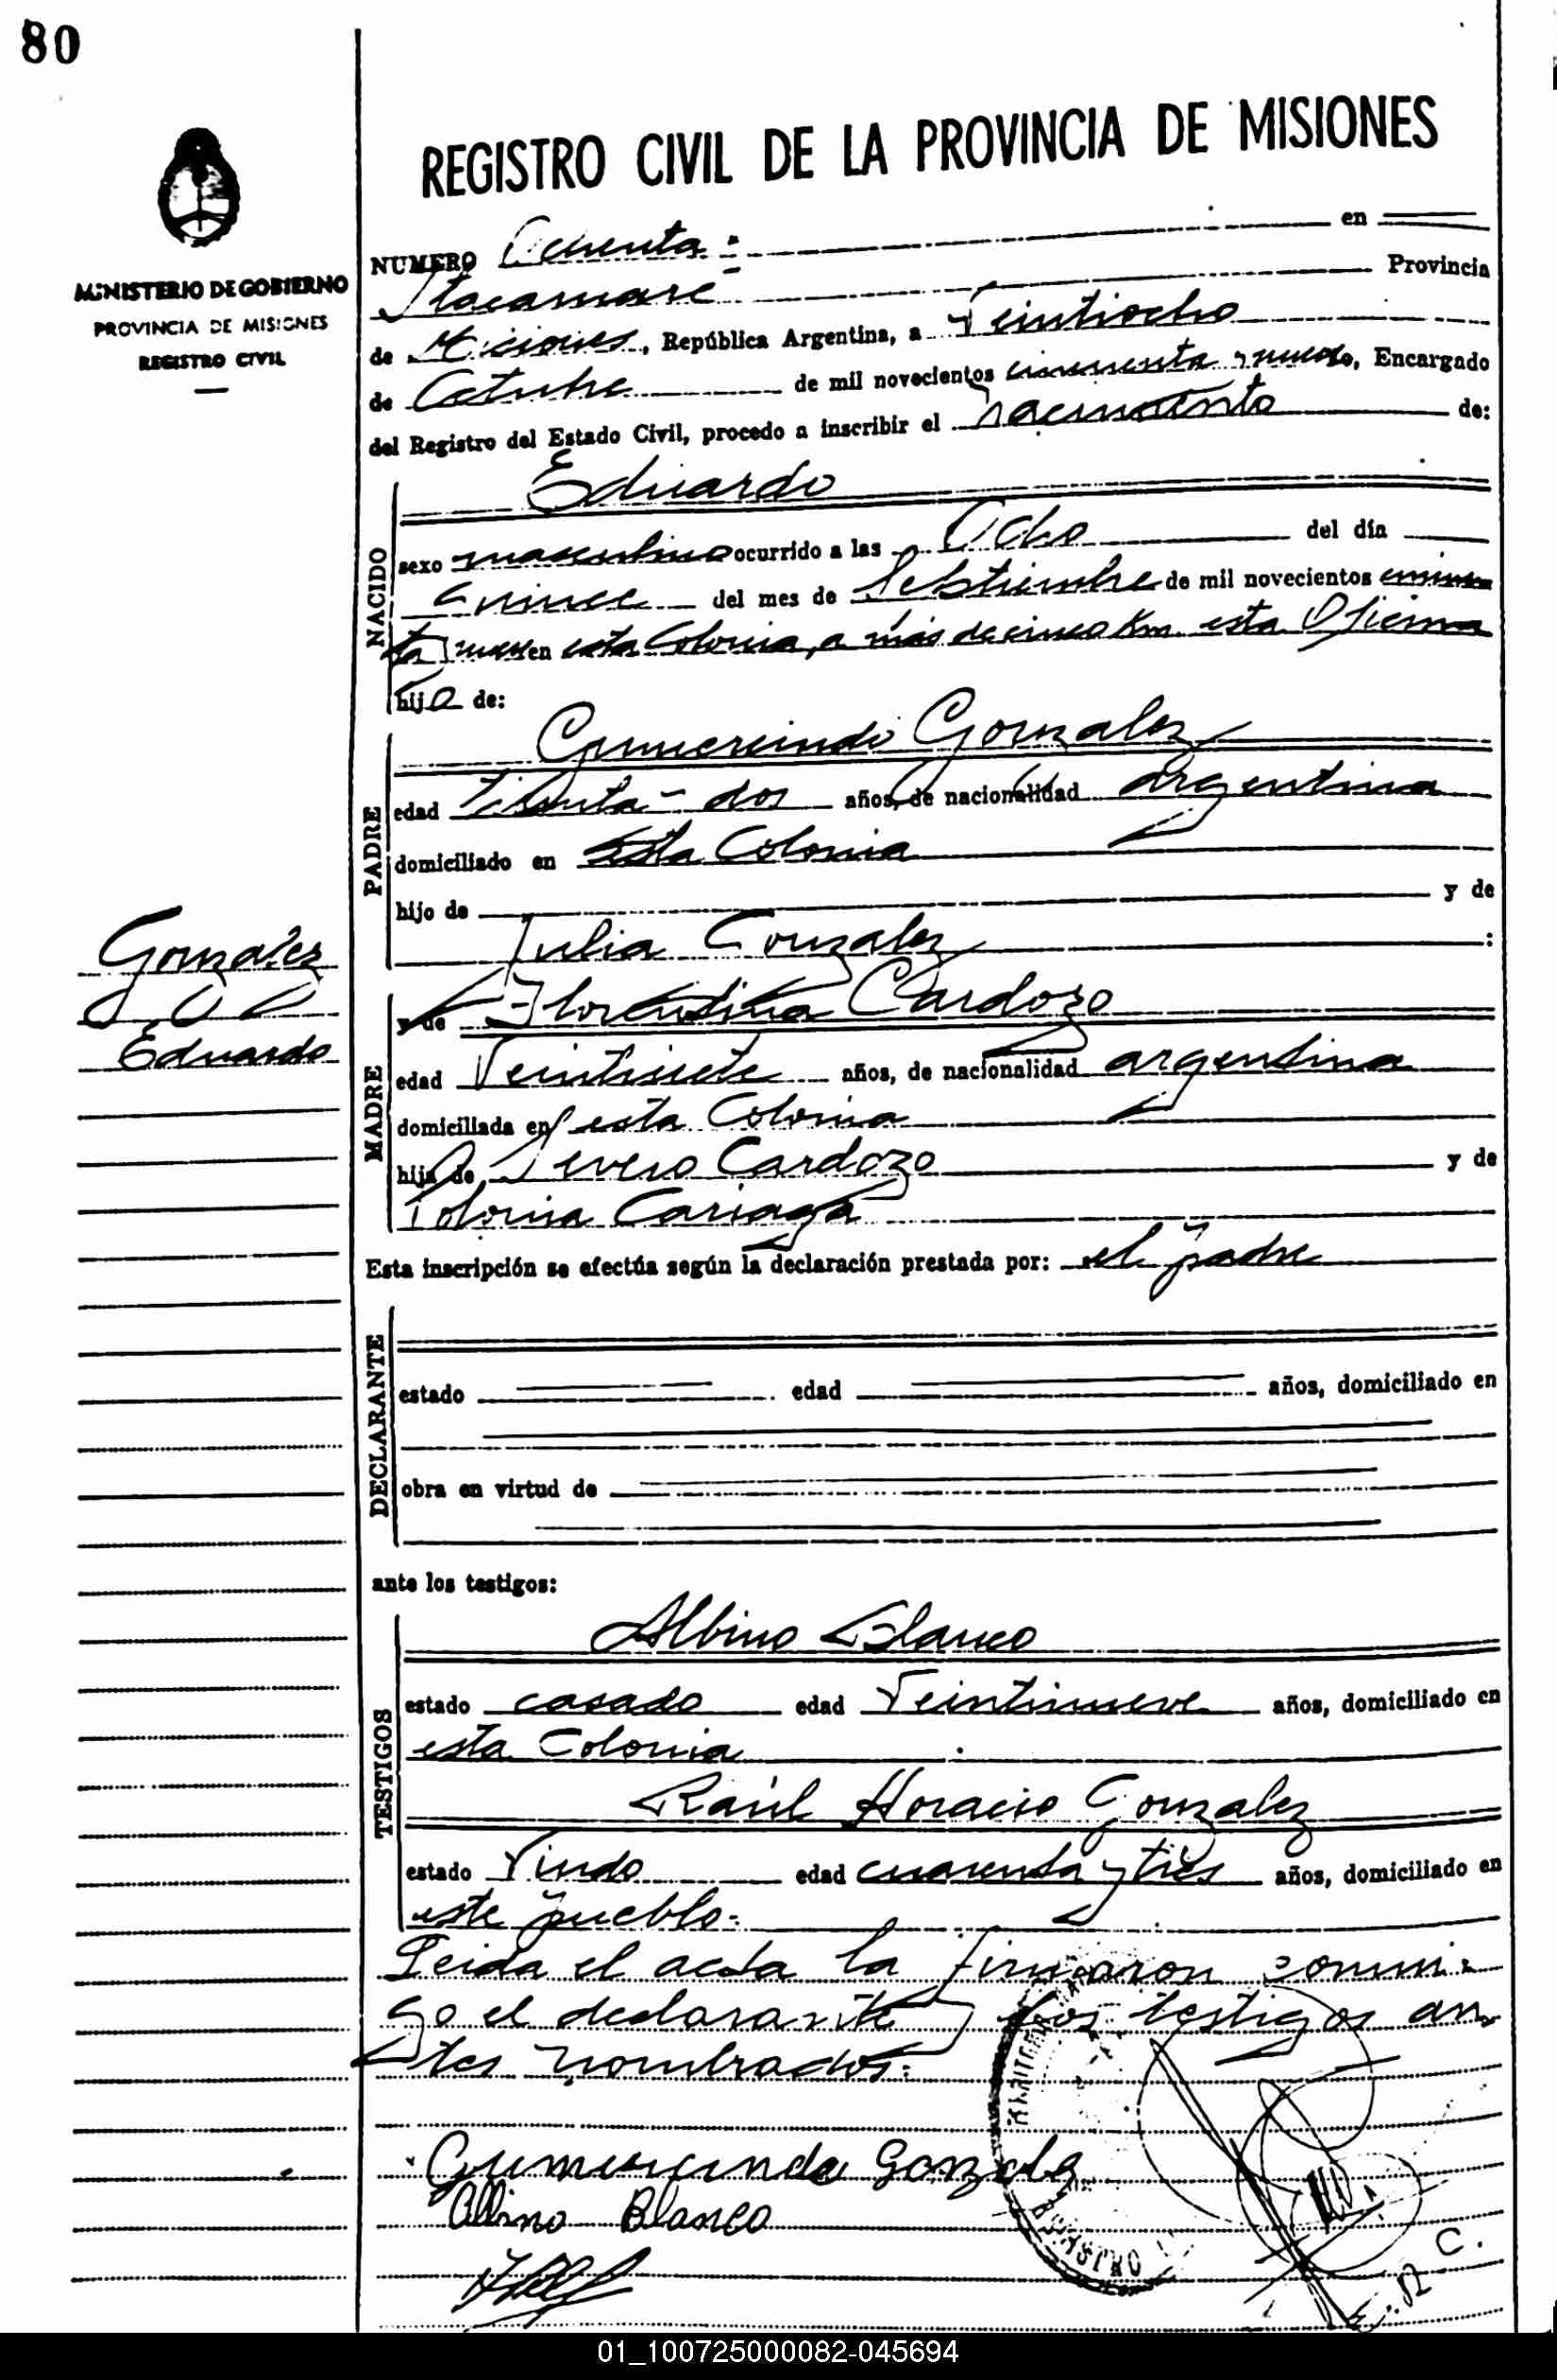 80
REGISTRO CIVIL DE LA PROVINCIA DE MISIONES
MINISTERIO DE GOBIERNO
PROVINCIA DE MISIONES
REGISTRO CIVIL
NUMERO Ochenta en
Itacaruaré Provincia
de Misiones, República Argentina, a Veintiocho
de Octubre de mil novecientos cincuenta y nueve, Encargado
del Registro del Estado Civil, procedo a inscribir el nacimiento de:
NACIDO
Eduardo
sexo masculino ocurrido a las Ocho del día
quince del mes de Sebtiembre de mil novecientos cincuen
ta y nueve en esta Colonia, a más de cinco Km. esta Oficina
hijo de:
PADRE
Gumercindo Gonzalez
edad treinta - dos años, de nacionalidad argentina
domiciliado en esta Colonia
hijo de y de
Julia Gonzalez :
Gonzalez
Eduardo
MADRE
y de Florentina Cardozo
edad Veintisiete años, de nacionalidad argentina
domiciliada en esta Colonia
hija de Severo Cardozo y de
Polonia Cariaga
Esta inscripción se efectúa según la declaración prestada por: el padre
DECLARANTE
estado edad años, domiciliado en
obra en virtud de
ante los testigos:
TESTIGOS
Albino Blanco
estado casado edad Veintinueve años, domiciliado en
esta Colonia
Raúl Horacio Gonzalez
estado Viudo edad cuarenta y tres años, domiciliado en
este pueblo.-
Leida el acta la firmaron conmi-
go el declarante y los testigos an
tes nombrados:
Gumercindo Gonzales
Albino Blanco
01_100725000082-045694